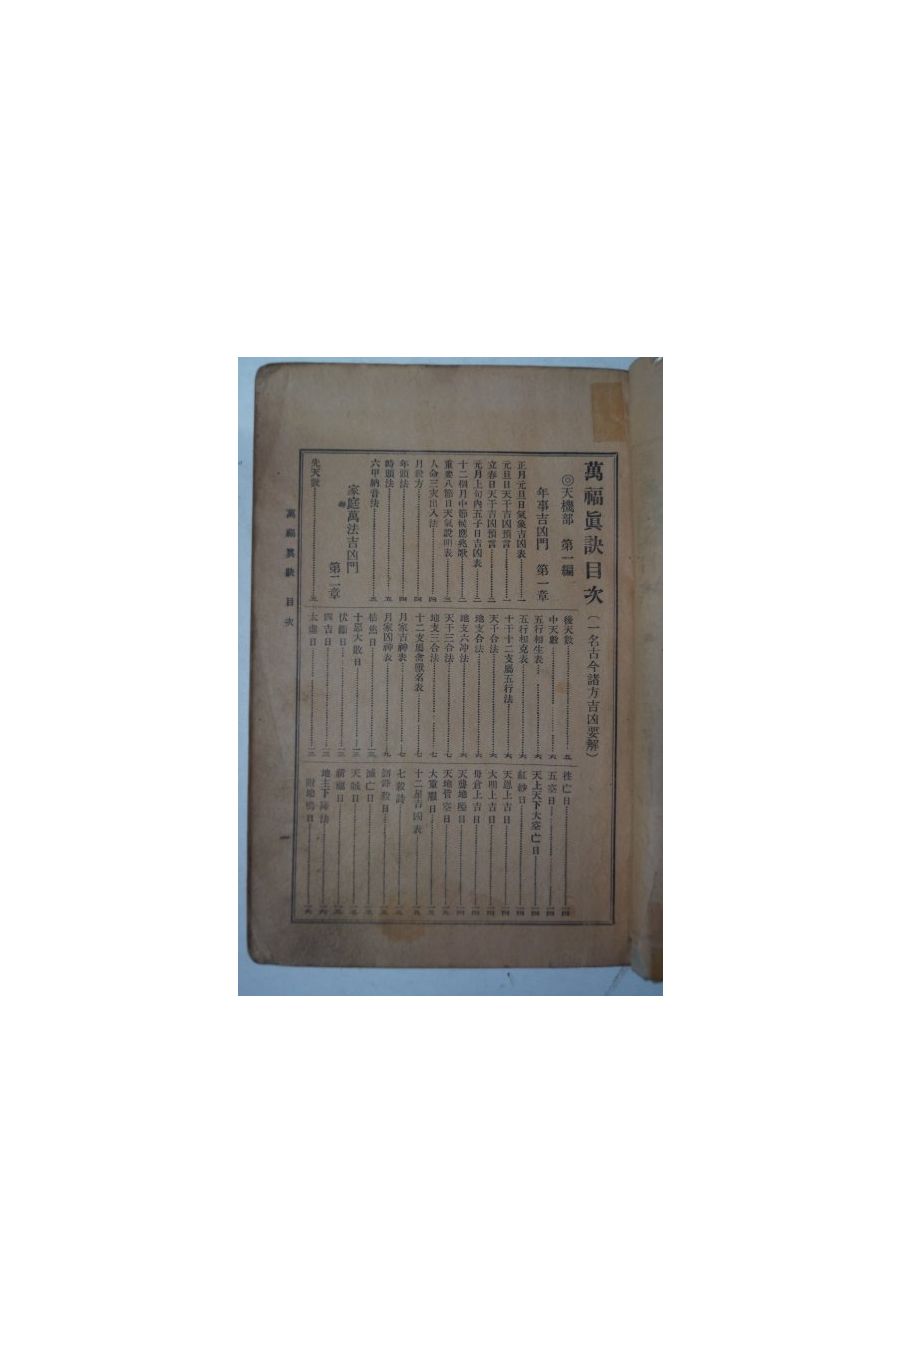 萬福眞訣目次（一名古今諸方吉凶要解）
◎天機部 第一編
年事吉凶門 第一章
正月元旦日氣象吉凶表…一
元旦日天干吉凶預言…一
立春日天干吉凶預言…二
元月上旬內五子日吉凶表…二
十二個月中節候應兆歌…二
重要八節日天氣說明表…三
人命三災出入法…四
月殺方…四
年頭法…四
時頭法…五
六甲納音法…五
家庭萬法吉凶門
第二章
先天數…五
後天數…五
中天數…六
五行相生表…六
五行相克表…六
十干十二支屬五行法…六
天干合法…六
地支合法…六
地支六冲法…六
天干三合法…七
地支三合法…七
十二支屬禽獸名表…七
月家吉神表…七
月家凶神表…九
枯焦日
十惡大敗日
伏斷日
四吉日
太虛日
往亡日…一四
五空日…一四
天上天下大空亡日…一四
紅紗日…一四
天恩上吉日…一四
大明上吉日…一四
母倉上吉日…一四
天聾地啞日…一四
天地皆空日
大重喪日
十二星吉凶表
七殺詩
滅亡日
天賊日
禍福日
地主下降法
附地鳴日
萬福眞訣 目次